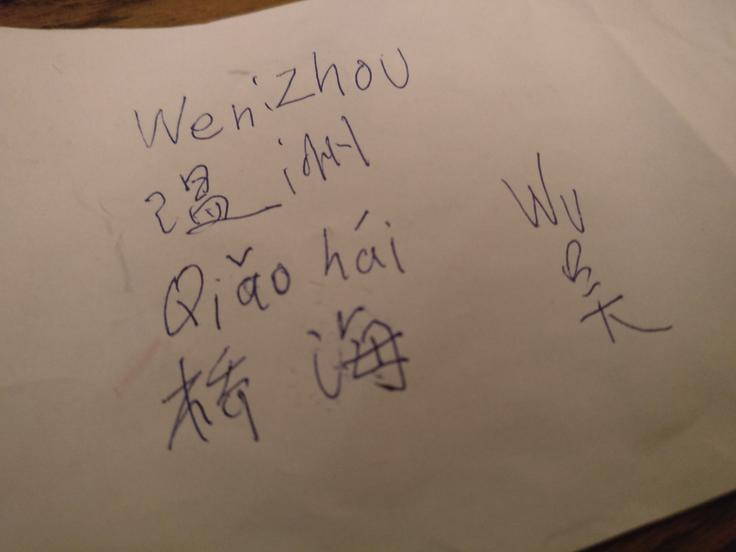 Wenzhou
温州
Qiǎo hái
桥海
Wu
吴